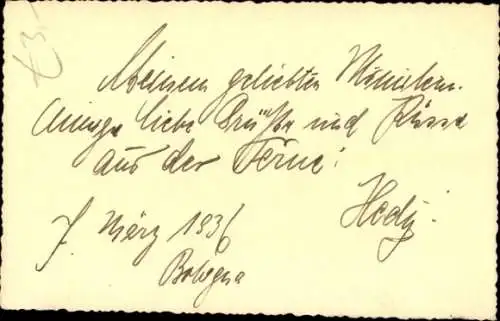 Meinem geliebten Mütterlein.
Innige liebe Grüße und Küsse
aus der Ferne!
Hedy.
7. März 1936
Bologna